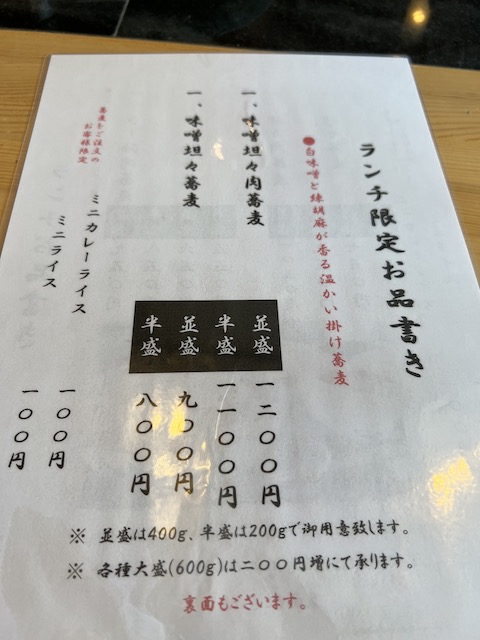 ランチ限定お品書き
●白味噌と練胡麻が香る温かい掛け蕎麦
一、味噌坦々肉蕎麦
並盛 一二〇〇円
半盛 一一〇〇円
一、味噌坦々蕎麦
並盛 九〇〇円
半盛 八〇〇円
蕎麦をご注文の
お客様限定
ミニカレーライス 一〇〇円
ミニライス 一〇〇円
※ 並盛は400g、半盛は200gで御用意致します。
※ 各種大盛(600g)は二〇〇円増にて承ります。
裏面もございます。